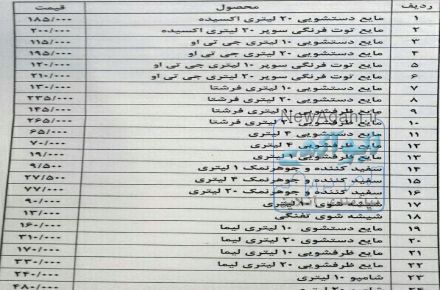 ردیف محصول قیمت
۱ مایع دستشویی ۲۰ لیتری اکسیده ۱۸۵/۰۰۰
۲ مایع توت فرنگی سوپر ۲۰ لیتری اکسیده ۲۰۰/۰۰۰
۳ مایع دستشویی ۱۰ لیتری جی تی او ۱۱۵/۰۰۰
۴ مایع دستشویی ۲۰ لیتری جی تی او ۱۹۵/۰۰۰
۵ مایع توت فرنگی سوپر ۱۰ لیتری جی تی او ۱۲۰/۰۰۰
۶ مایع توت فرنگی سوپر ۲۰ لیتری جی تی او ۲۱۰/۰۰۰
۷ مایع دستشویی ۱۰ لیتری فرشتا ۱۳۰/۰۰۰
۸ مایع دستشویی ۲۰ لیتری فرشتا ۲۳۵/۰۰۰
۹ مایع ظرفشویی ۱۰ لیتری فرشتا ۱۴۵/۰۰۰
۱۰ مایع ظرفشویی ۲۰ لیتری فرشتا ۲۶۵/۰۰۰
NewAdah.ir
۱۱ مایع دستشویی ۴ لیتری ۶۵/۰۰۰
۱۲ مایع ظرفشویی ۴ لیتری ۷۰/۰۰۰
۱۳ مایع ظرفشویی لیتری ۱۹/۰۰۰
۱۴ سفید کننده و جوهرنمک ۱ لیتری ۹/۵۰۰
۱۵ سفید کننده و جوهرنمک ۴ لیتری ۲۷/۵۰۰
۱۶ سفید کننده و جوهرنمک ۲۰ لیتری ۷۷/۰۰۰
۱۷ شیشه شوی لیتری ۹۰/۰۰۰
۱۸ شیشه شوی تفنگی ۱۳/۰۰۰
۱۹ مایع دستشویی ۱۰ لیتری لیما ۱۶۰/۰۰۰
۲۰ مایع دستشوی ۲۰ لیتری لیما ۳۱۰/۰۰۰
۲۱ مایع ظرفشویی ۱۰ لیتری لیما ۱۷۰/۰۰۰
۲۲ مایع ظرفشویی ۲۰ لیتری لیما ۳۳۰/۰۰۰
۲۳ شامپو ۱۰ لیتری ۲۴۰/۰۰۰
۴۸۰/۰۰۰